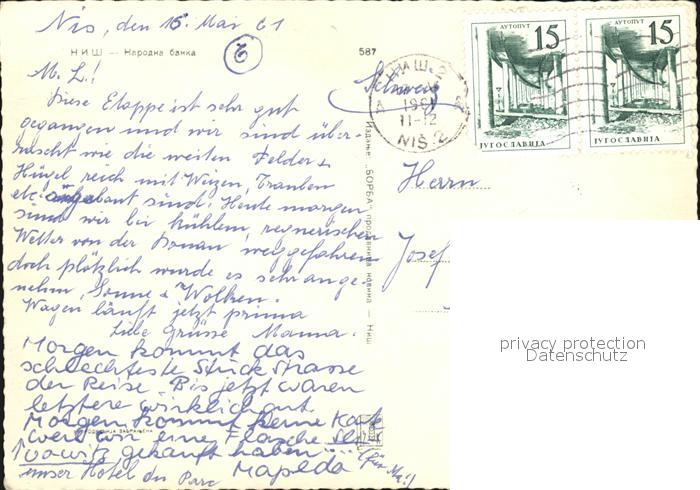 Nis, den 16. Mai 61
НИШ — Народна банка
6
587
M. L.!
Diese Etappe ist sehr gut
gegangen und wir sind über-
rascht wie die weiten Felder &
Hügel reich mit Weizen, Trauben
etc. angebaut sind! Heute morgen
sind wir bei kühlem, regnerischen
Wetter von der Donau weggefahren
doch plötzlich wurde es sehr ange-
nehm, Sonne & Wolken.
Wagen läuft jetzt prima
Liebe Grüsse Mamma.
Morgen kommt das
schlechteste Stück Strasse
der Reise. Bis jetzt waren
letztere wirklich gut.
Morgen kommt keine Karte
weil wir eine Flasche Sli-
vowitz gekauft haben... (für Me!)
↑ unser Hotel du Parc
Издање „БОРБА" продавница новина — Ниш
Schweiz
НИШ 2
1961
11-12
NIŠ 2
АУТОПУТ
15
ЈУГОСЛАВИЈА
АУТОПУТ
15
ЈУГОСЛАВИЈА
Herrn
Josef
privacy protection
Datenschutz